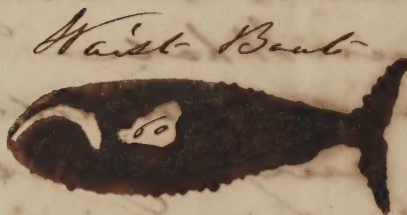 Waist Boat
60